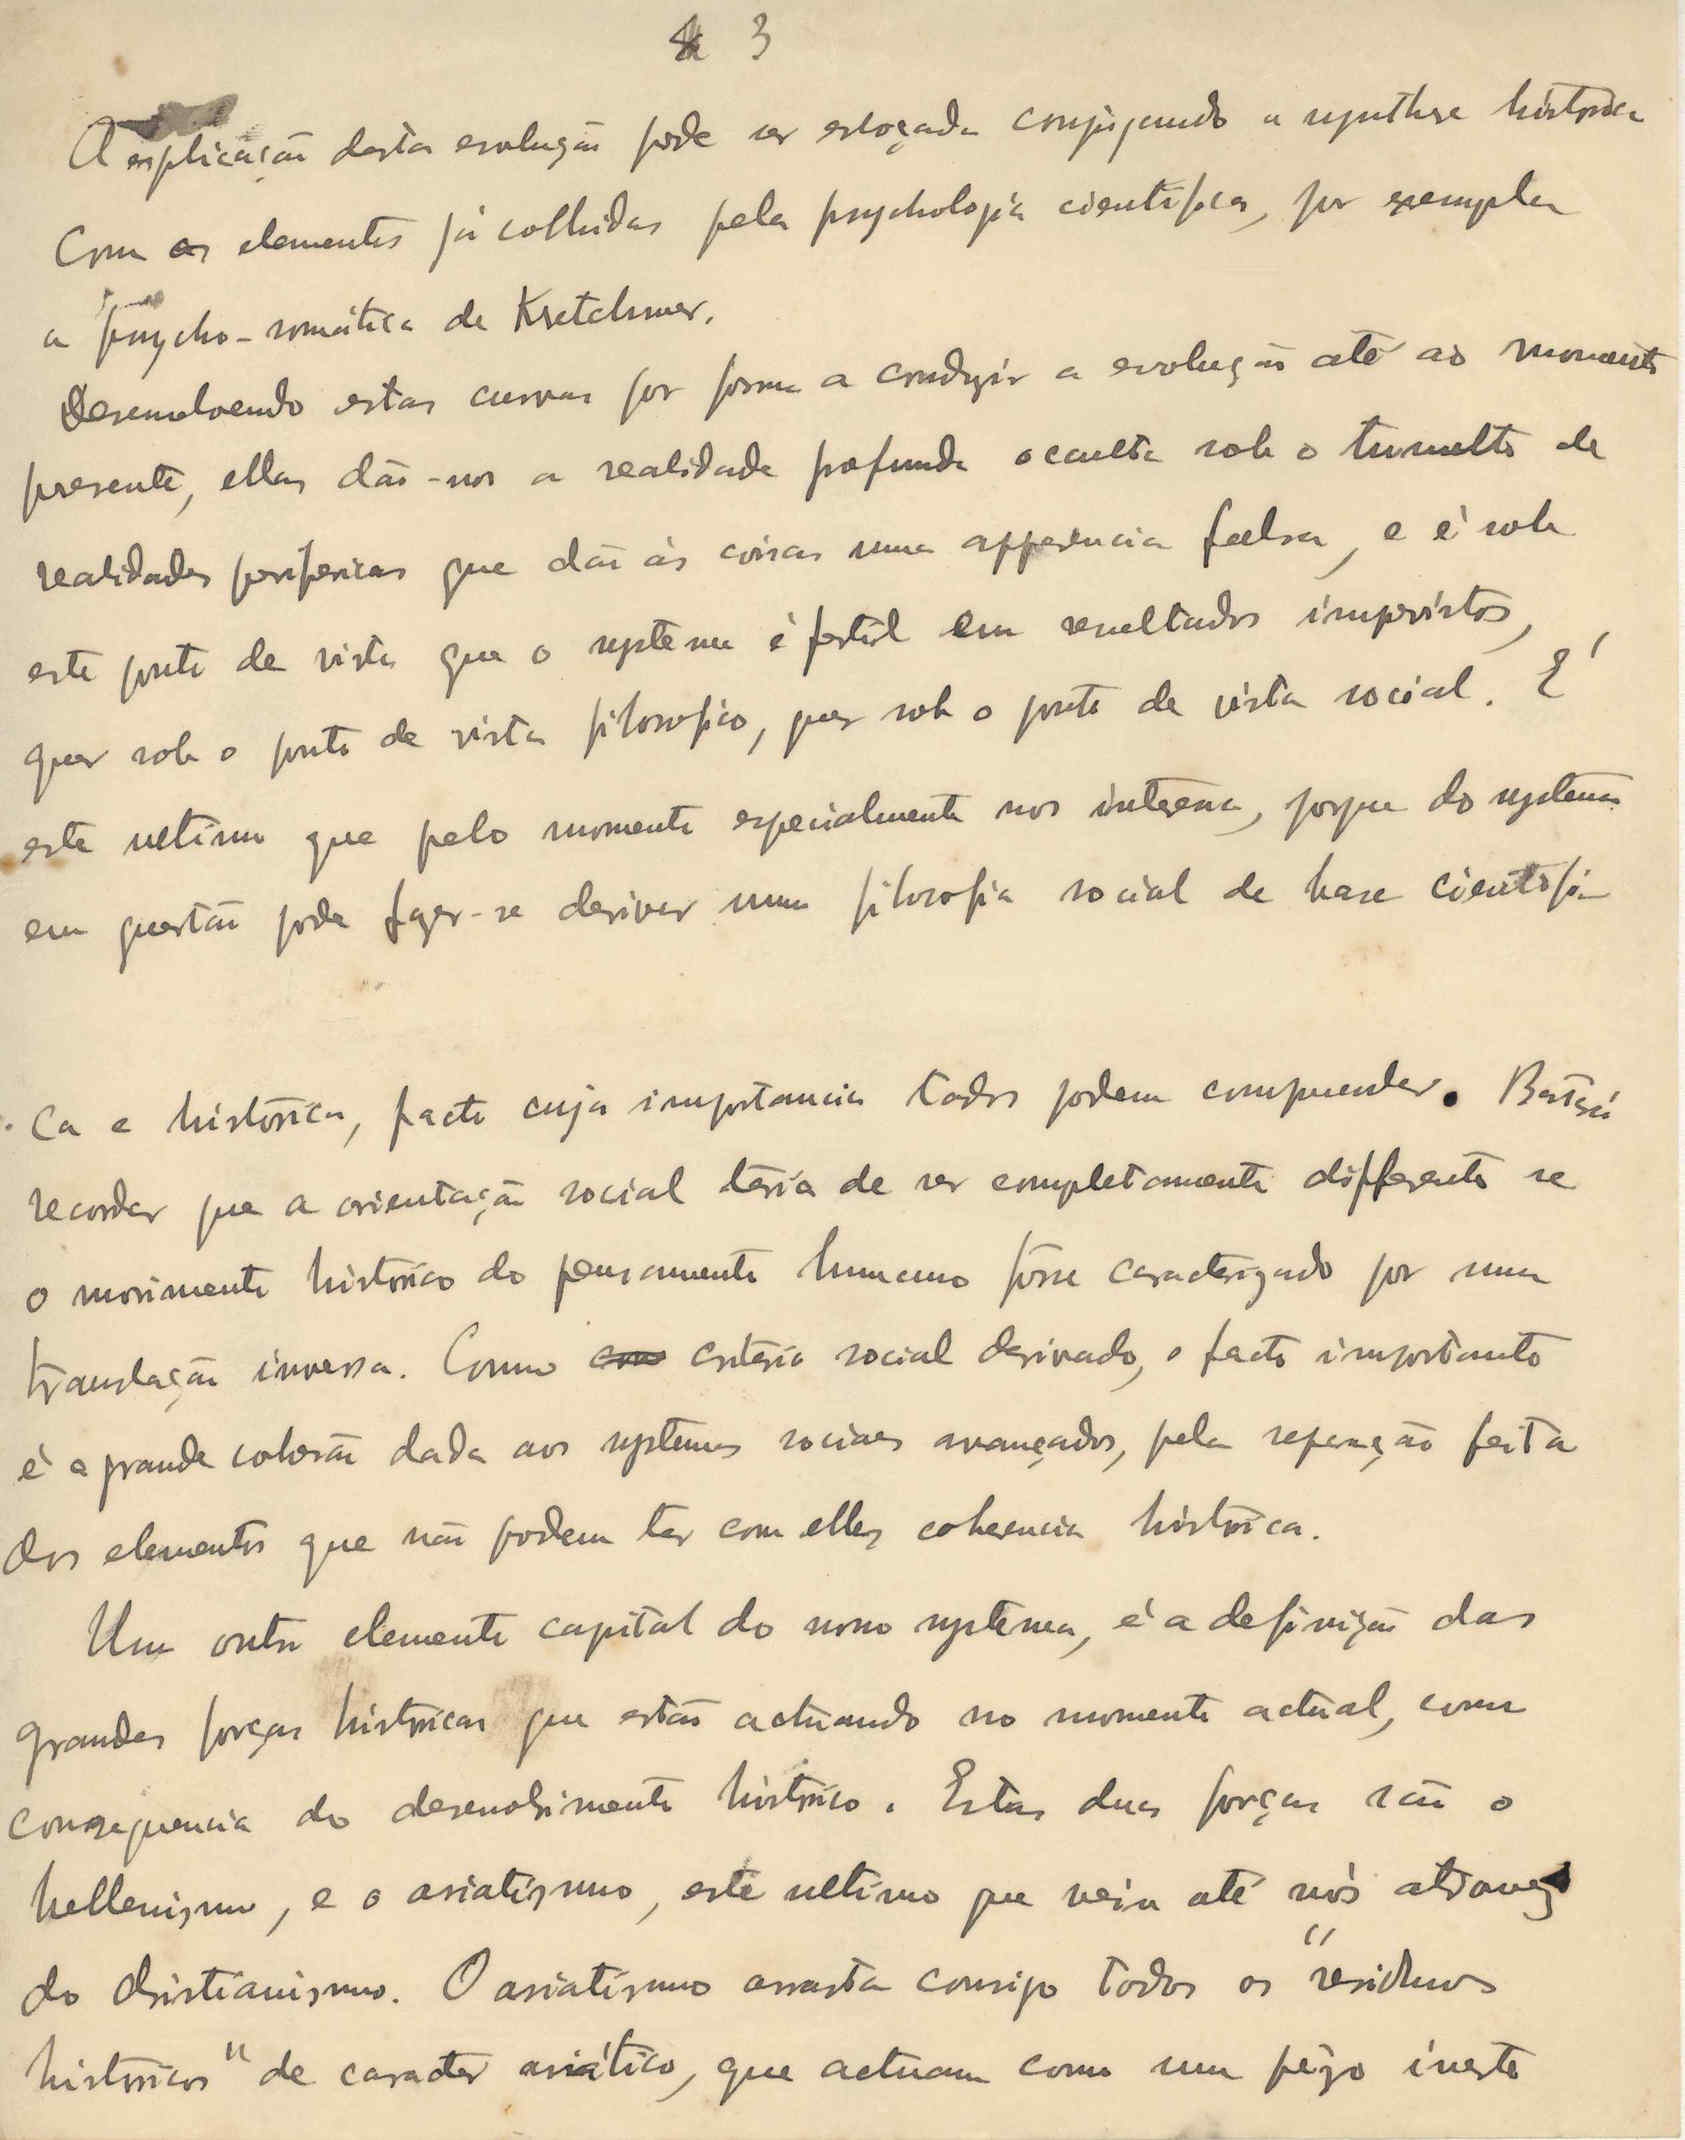 3
A explicação desta evolução pode ser esboçada conjugando a synthese histórica
Com os elementos já colhidos pela psychologia cientifica, por exemplo
a psycho-somática de Kretchmer.
Desenvolvendo estas curvas por forma a conduzir a evolução até ao momento
presente, ellas dão-nos a realidade profunda occulta sob o tumulto de
realidades perifericas que dão ás coisas uma apparencia falsa, e é sob
este ponto de vista que o systema é fertil em resultados imprevistos,
quer sob o ponto de vista filosofico, quer sob o ponto de vista social. E'
este ultimo que pelo momento especialmente nos interessa, porque do systema
em questão pode fazer-se derivar uma filosofia social de base cientifi-
ca e histórica, facto cuja importancia todos podem comprender. Bastará
recordar que a orientação social teria de ser completamente differente se
o movimento histórico do pensamento humano fôsse caracterizado por uma
translação inversa. Como criterio social derivado, o facto importante
é a grande cohesão dada aos systemas sociaes avançados, pela separação feita
dos elementos que não podem ter com elles coherencia histórica.
Um outro elemento capital do novo systema, é a definição das
grandes forças históricas que estão actuando no momento actual, como
consequencia do desenvolvimento histórico. Estas duas forças são o
hellenismo, e o asiatismo, este ultimo que veiu até nós atravez
do christianismo. O asiatismo arrasta consigo todos os "residuos
históricos" de caracter asiático, que actuam como um pêzo inerte